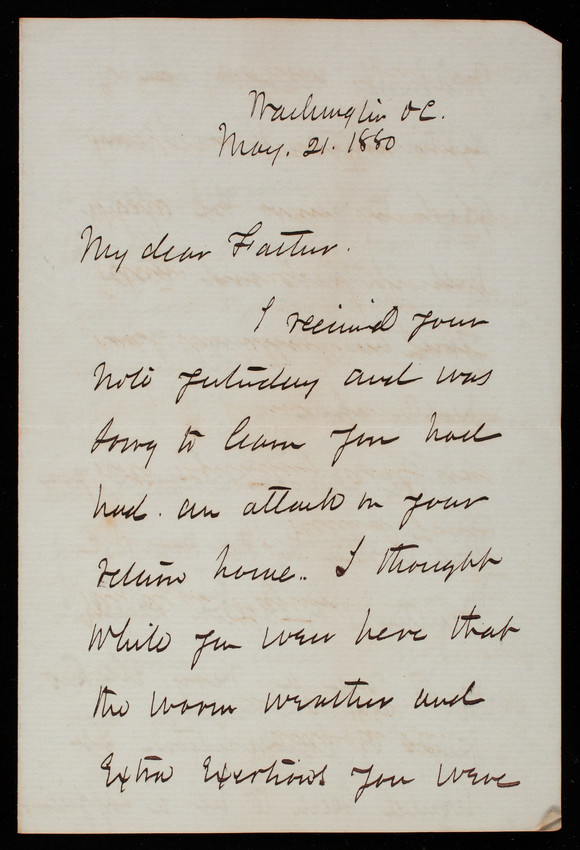 Washington DC.
May. 21. 1880
My dear Father.
I received your
note yesterday and was
sorry to learn you had
had. an attack on your
return home.. I thought
while you were here that
the warm weather and
Extra Exertions you were